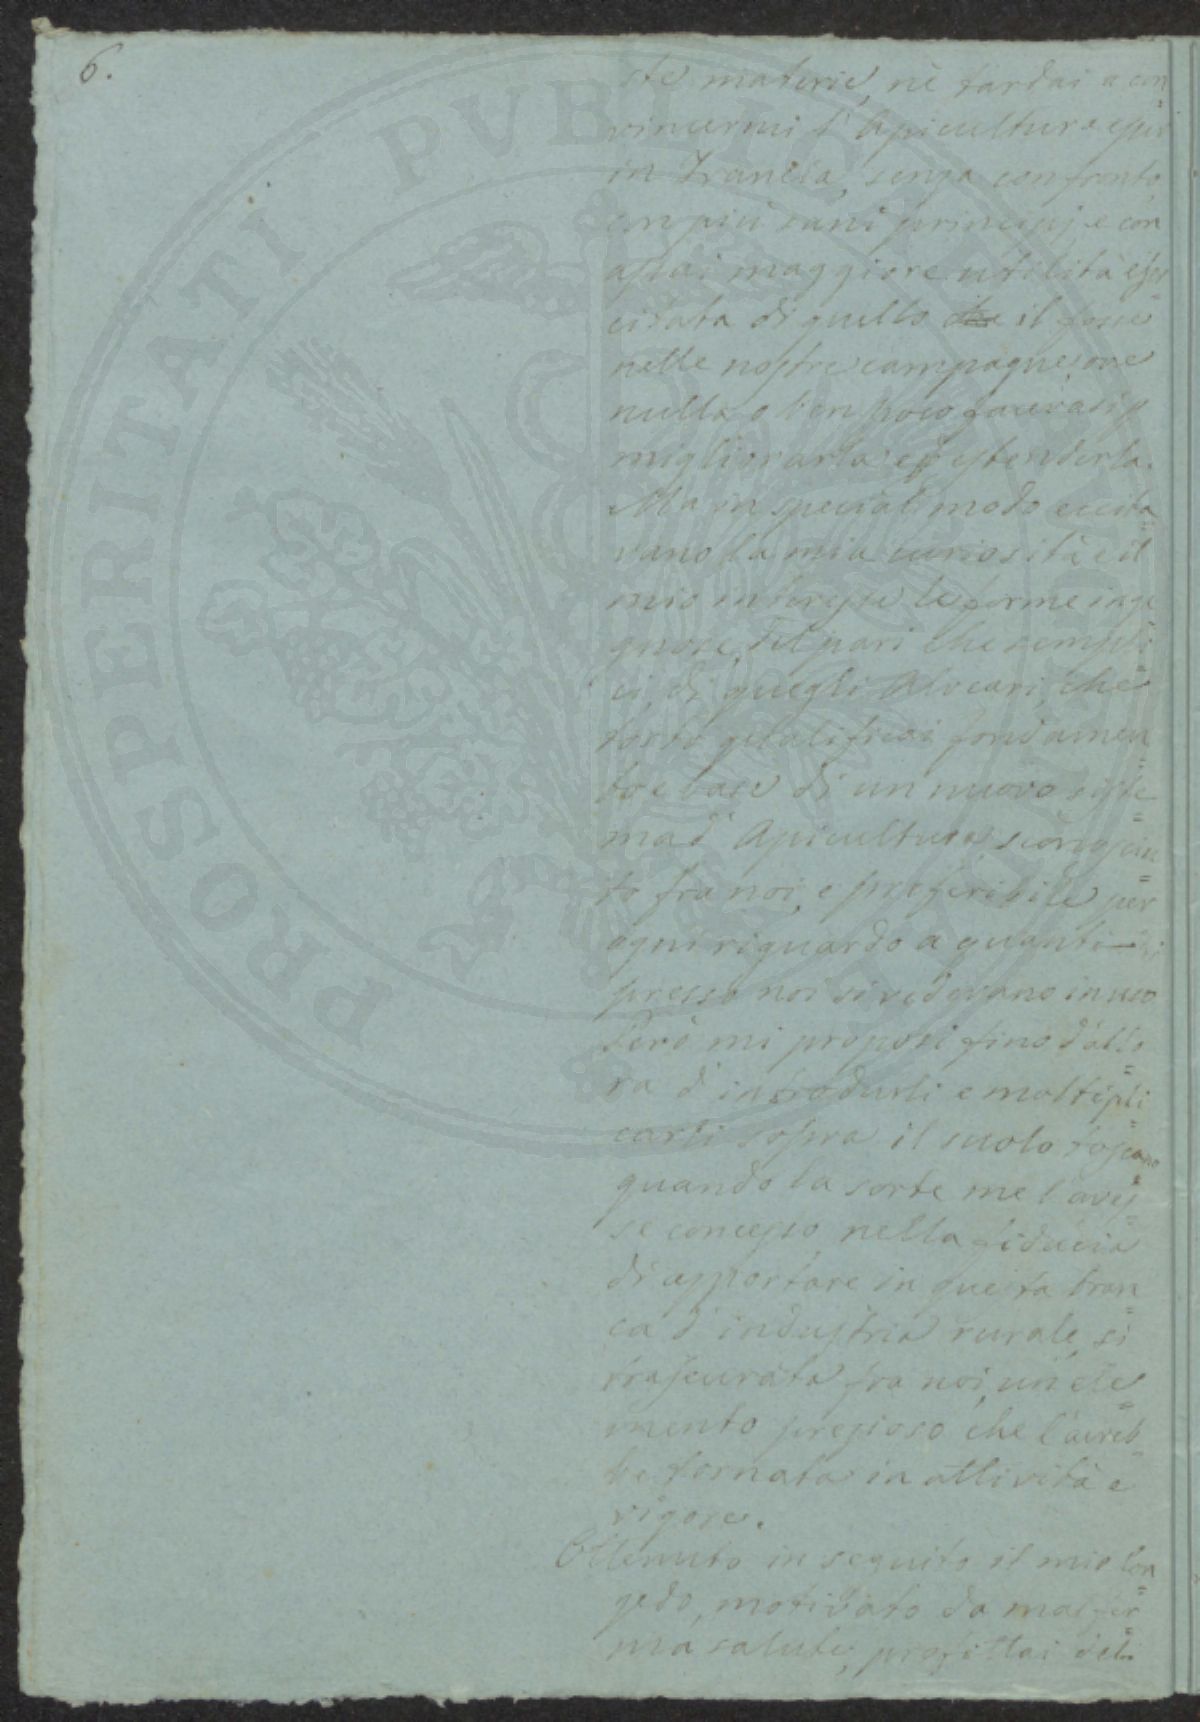 6.
ste materie, nè tardai a con=
vincermi l'Apicultura esser
in Francia, senza confronto,
con più sani principj e con
assai maggiore utilità eser=
citata di quello che il fosse
nelle nostre campagne, ove
nulla o ben poco facevasi p
migliorarla ed estenderla.
Ma in special modo eccita=
vano la mia curiosità e il
mio interesse le forme inge
gnose, del pari che sempli=
ci, di quegli Alveari, che
tosto qualificai fondamen=
to e base di un nuovo siste=
ma d'Apicultura sconosciu=
to fra noi, e preferibile per
ogni riguardo a quanti
presso noi si vedevano in uso
Però mi proposi fino d'allo=
ra d'introdurli e moltipli=
carli sopra il suolo toscano
quando la sorte me l'aves=
se concesso, nella fiducia
di apportare in questa bran=
ca d'industria rurale, sì
trascurata fra noi, un ele=
mento prezioso che l'avreb=
be tornata in attività e
vigore.
Ottenuto in seguito il mio con=
gedo, motivato da mal fer=
ma salute, profittai del
PROSPERITATI PUBLICAE